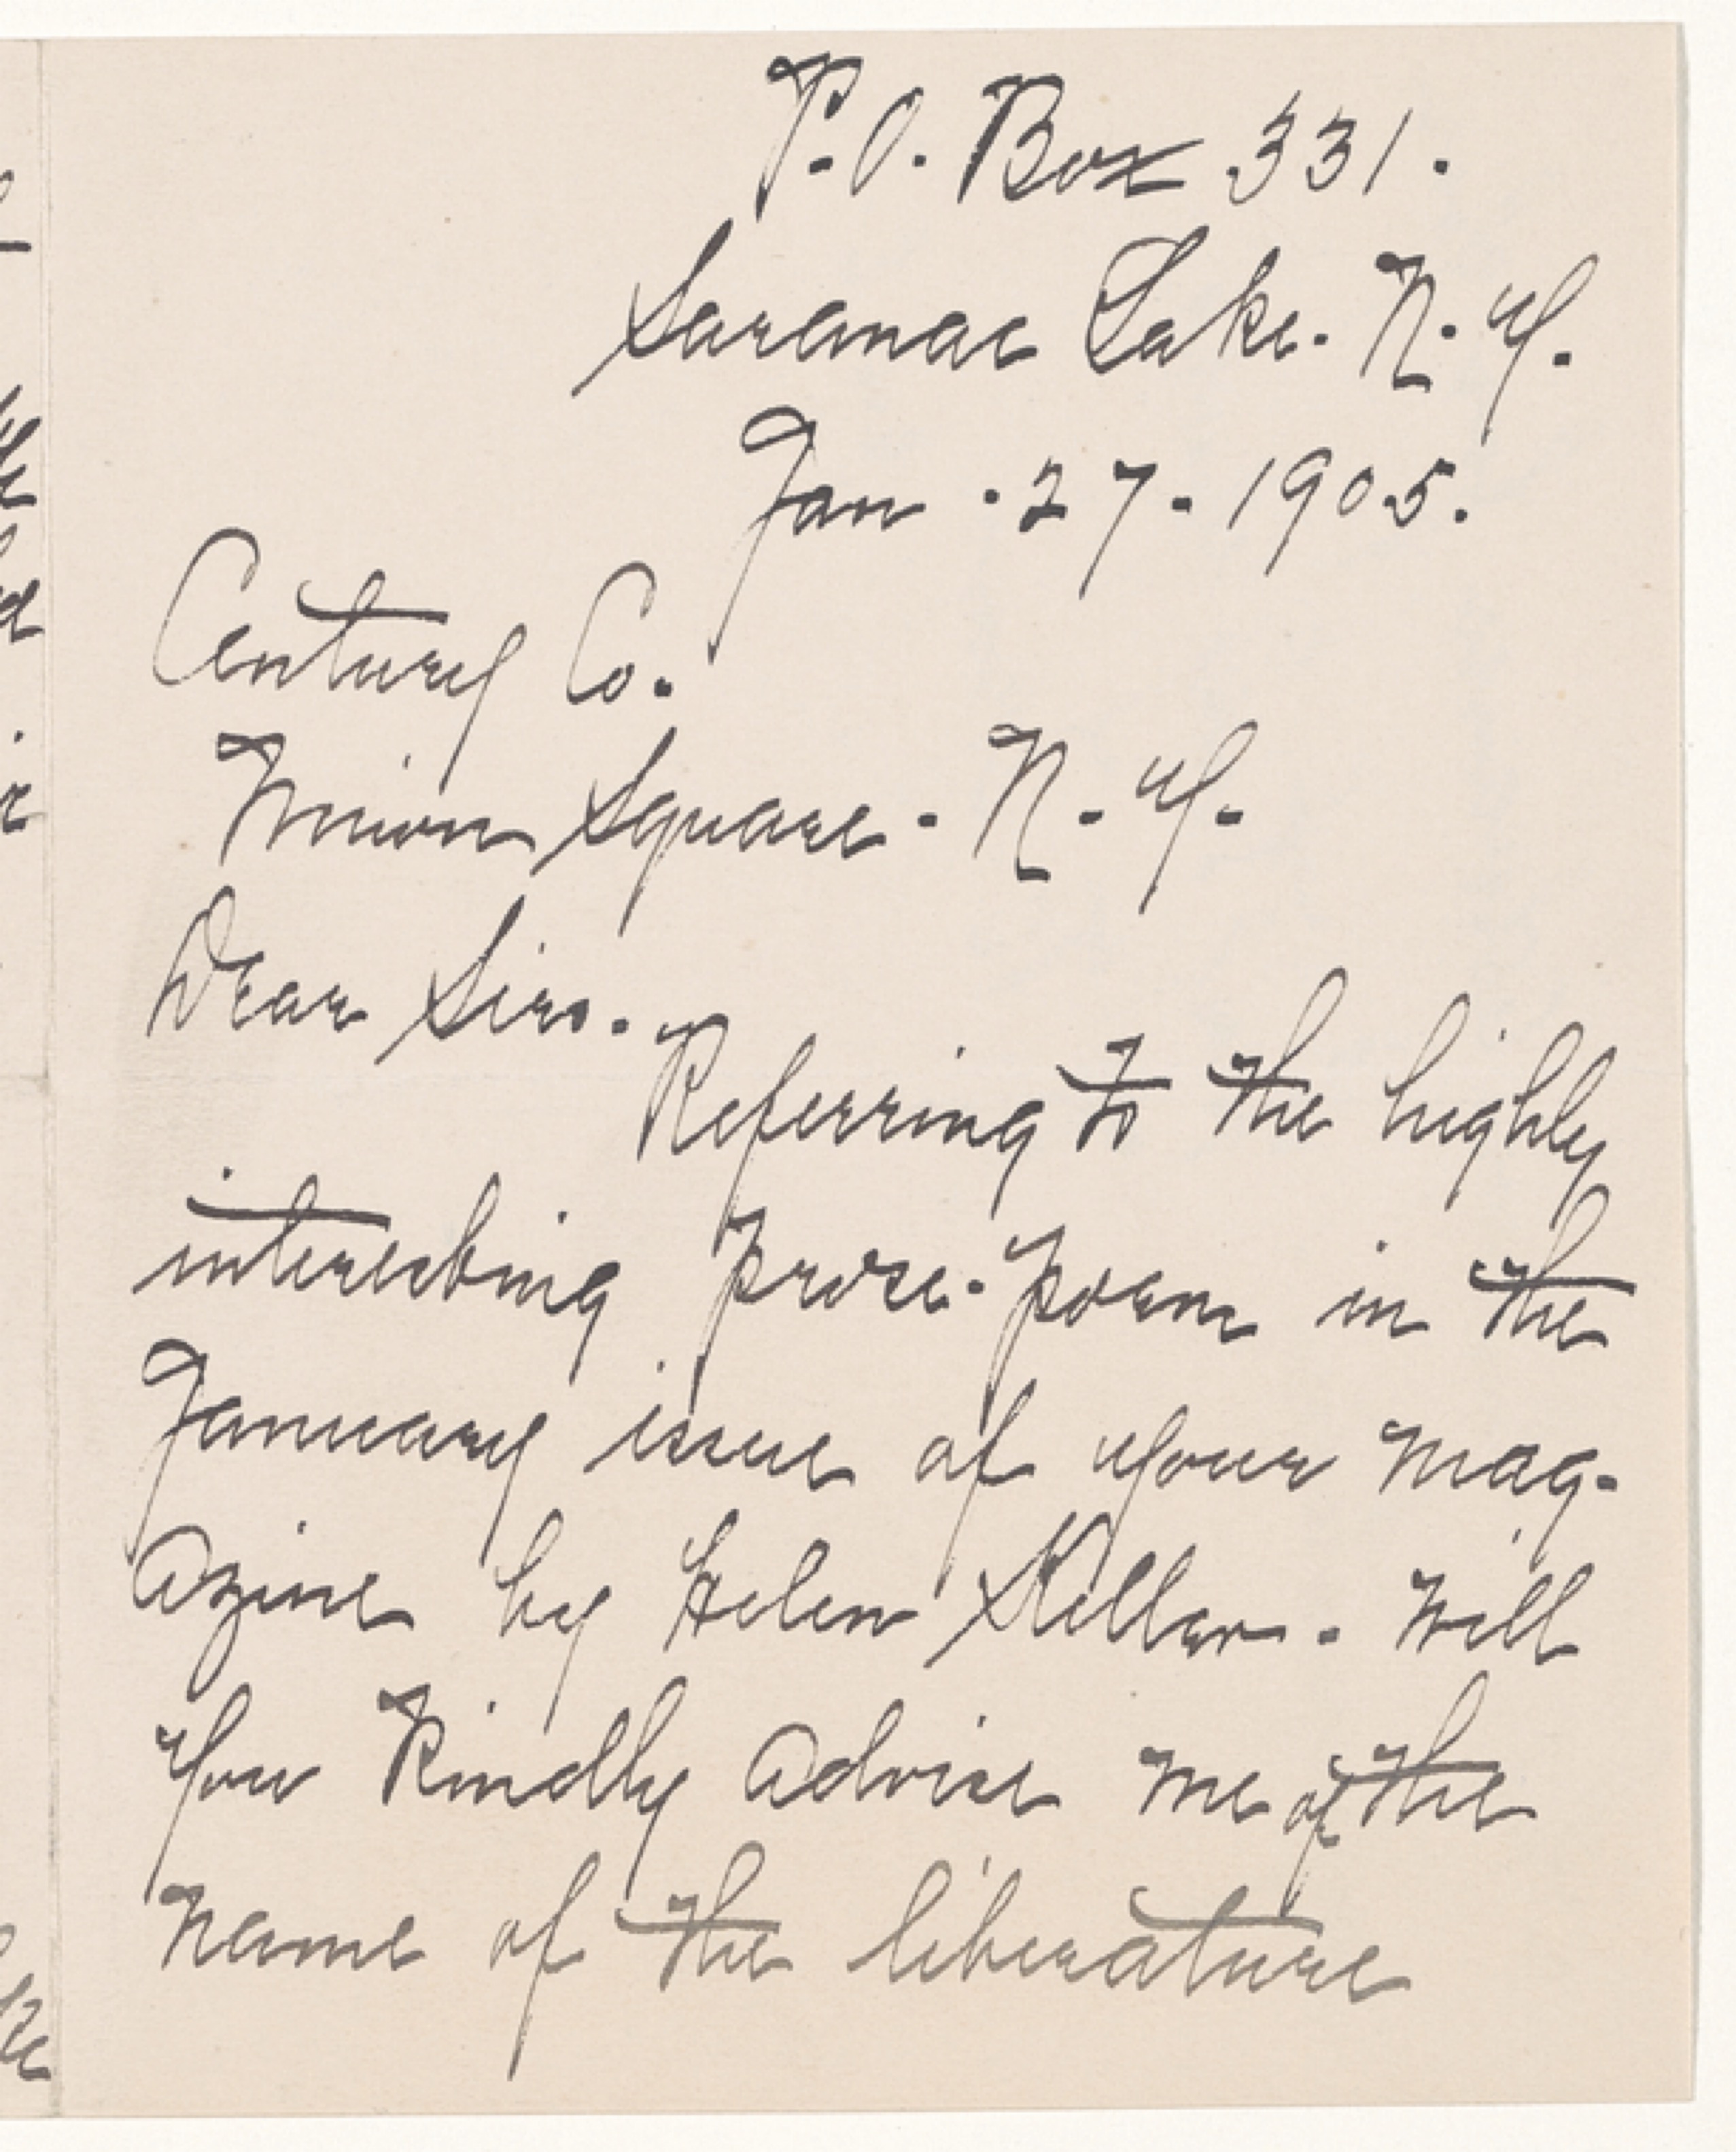 P.O. Box 331.
Saranac Lake. N.Y.
Jan. 27. 1905.
Century Co.
Union Square. N.Y.
Dear Sirs.
Referring to the highly
interesting prose-poem in the
January issue of your mag-
azine by Helen Keller. Will
you kindly advise me of the
name of the liberature